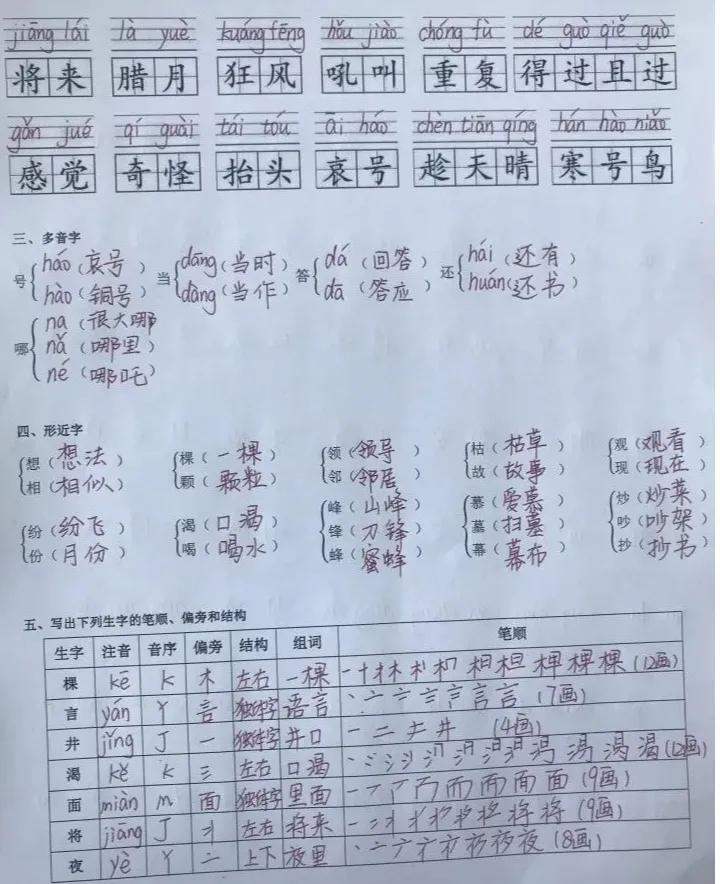 jiāng lái là yuè kuáng fēng hǒu jiào chóng fù dé guò qiě guò
将来 腊月 狂风 吼叫 重复 得过且过
gǎn jué qí guài tái tóu āi háo chèn tiān qíng hán hào niǎo
感觉 奇怪 抬头 哀号 趁天晴 寒号鸟
三、多音字
号 háo(哀号) hào(铜号) 当 dāng(当时) dàng(当作) 答 dá(回答) dā(答应) 还 hái(还有) huán(还书)
哪 na(很大哪) nǎ(哪里) né(哪吒)
四、形近字
想(想法) 棵(一棵) 领(领导) 枯(枯草) 观(观看)
相(相似) 颗(颗粒) 邻(邻居) 故(故事) 现(现在)
纷(纷飞) 渴(口渴) 峰(山峰) 慕(爱慕) 炒(炒菜)
份(月份) 喝(喝水) 锋(刀锋) 墓(扫墓) 吵(吵架)
蜂(蜜蜂) 幕(幕布) 抄(抄书)
五、写出下列生字的笔顺、偏旁和结构
生字 注音 音序 偏旁 结构 组词 笔顺
棵 kē K 木 左右 一棵 (12画)
言 yán Y 言 独体字 语言 (7画)
井 jǐng J 一 独体字 井口 (4画)
渴 kě K 氵 左右 口渴 (12画)
面 miàn M 面 独体字 里面 (9画)
将 jiāng J 丬 左右 将来 (9画)
夜 yè Y 亠 上下 夜里 (8画)